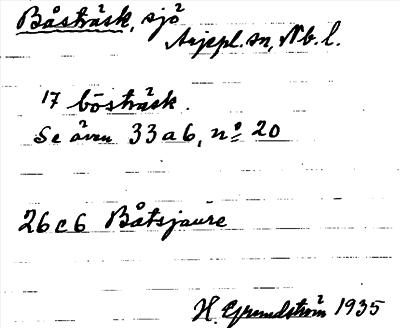 Båsträsk, sjö
Arjepl. sn, Nb. l.
17 bösträsk.
Se även 33 a 6, nº 20
26 c 6 Båtsjaure
H. Grundström 1935